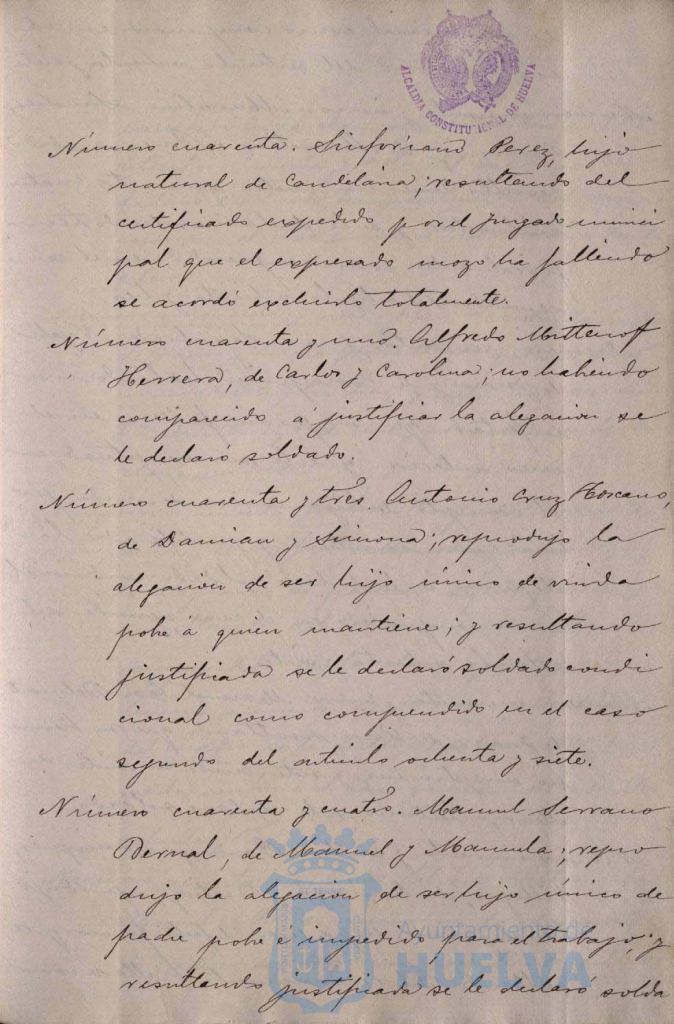 ALCALDIA CONSTITUCIONAL DE HUELVA
Número cuarenta. Sinforiano Perez, hijo
natural de Candelaria; resultando del
certificado expedido por el Juzgado munici
pal que el expresado mozo ha fallecido
se acordó excluirlo totalmente.
Número cuarenta y uno. Alfredo Mittenof
Herrera, de Carlos y Carolina; no habiendo
comparecido á justificar la alegacion se
le declaró soldado.
Número cuarenta y trés. Antonio Cruz Toscano,
de Damian y Simona; reprodujo la
alegacion de ser hijo único de viuda
pobre á quien mantiene; y resultando
justificada se le declaró soldado condi
cional como comprendido en el caso
segundo del articulo ochenta y siete.
Número cuarenta y cuatro. Manuel Serrano
Bernal, de Manuel y Manuela; repro
dujo la alegacion de ser hijo único de
padre pobre é impedido para el trabajo; y
resultando justificada se le declaró solda
Ayuntamiento de
HUELVA